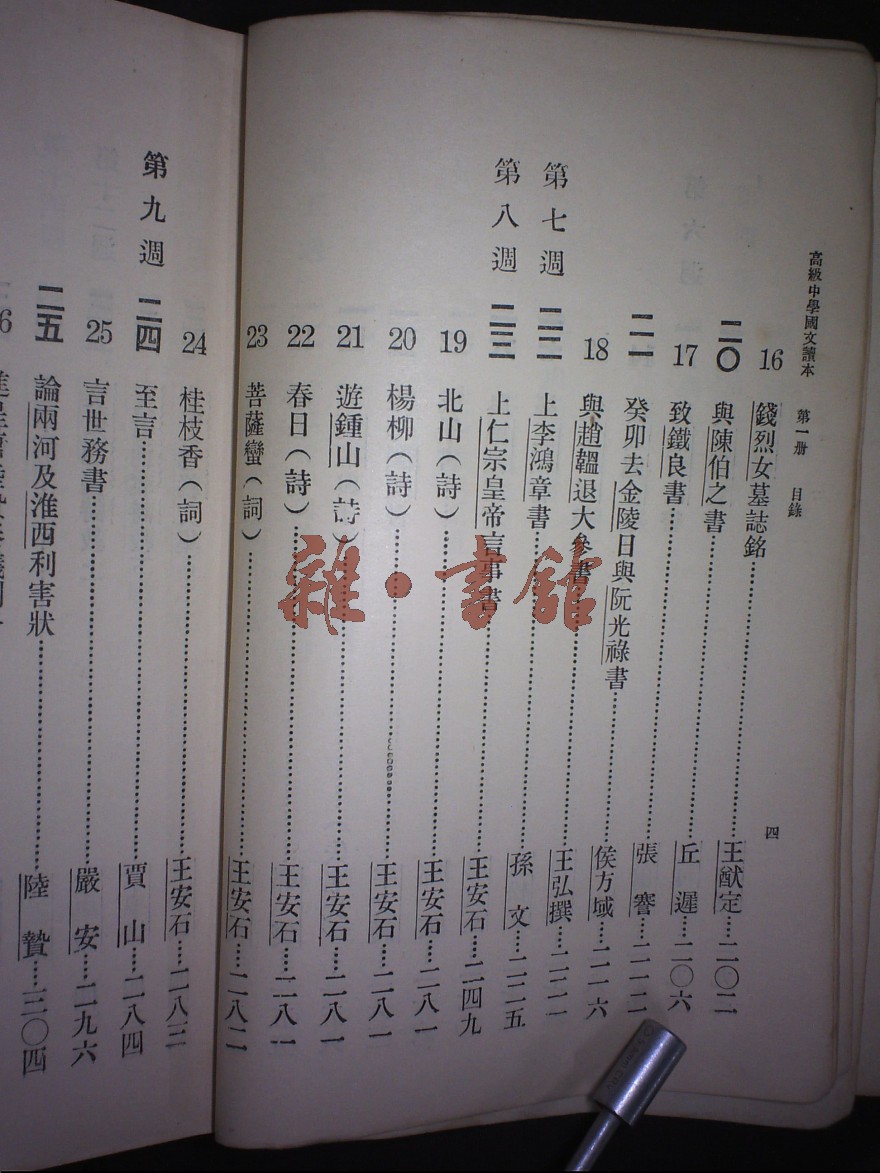 高級中學國文讀本 第一册 目錄 四
16 錢烈女墓誌銘……王猷定…二〇二
二〇 與陳伯之書……丘遲…二〇六
17 致鐵良書……張謇…二一二
二一 癸卯去金陵日與阮光祿書……侯方域…二一六
18 與趙韞退大參書……王弘撰…二二一
第七週 二二 上李鴻章書……孫文…二二五
第八週 二三 上仁宗皇帝言事書……王安石…二四九
19 北山（詩）……王安石…二八一
20 楊柳（詩）……王安石…二八一
21 遊鍾山（詩）……王安石…二八一
22 春日（詩）……王安石…二八一
23 菩薩蠻（詞）……王安石…二八二
24 桂枝香（詞）……王安石…二八三
第九週 二四 至言……賈山…二八四
25 言世務書……嚴安…二九六
二五 論兩河及淮西利害狀……陸贄…三〇四
雜·書館